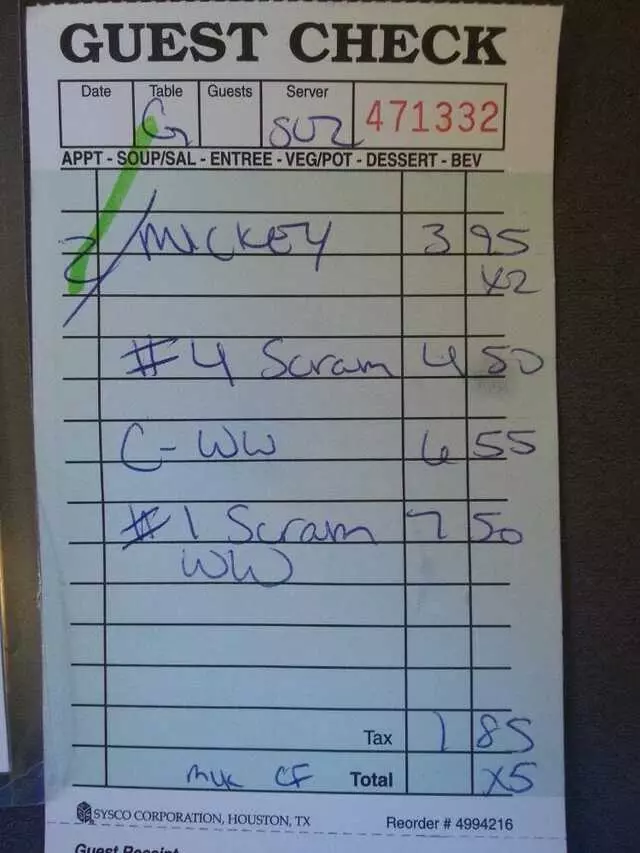 GUEST CHECK
Date Table Guests Server
G SUZ 471332
APPT - SOUP/SAL - ENTREE - VEG/POT - DESSERT - BEV
2 MICKEY 3 95
X2
#4 Scram 4 50
C-WW 6 55
#1 Scram 7 50
WW
Tax 1 85
CF Total X5
SYSCO CORPORATION, HOUSTON, TX Reorder # 4994216
Guest Receipt